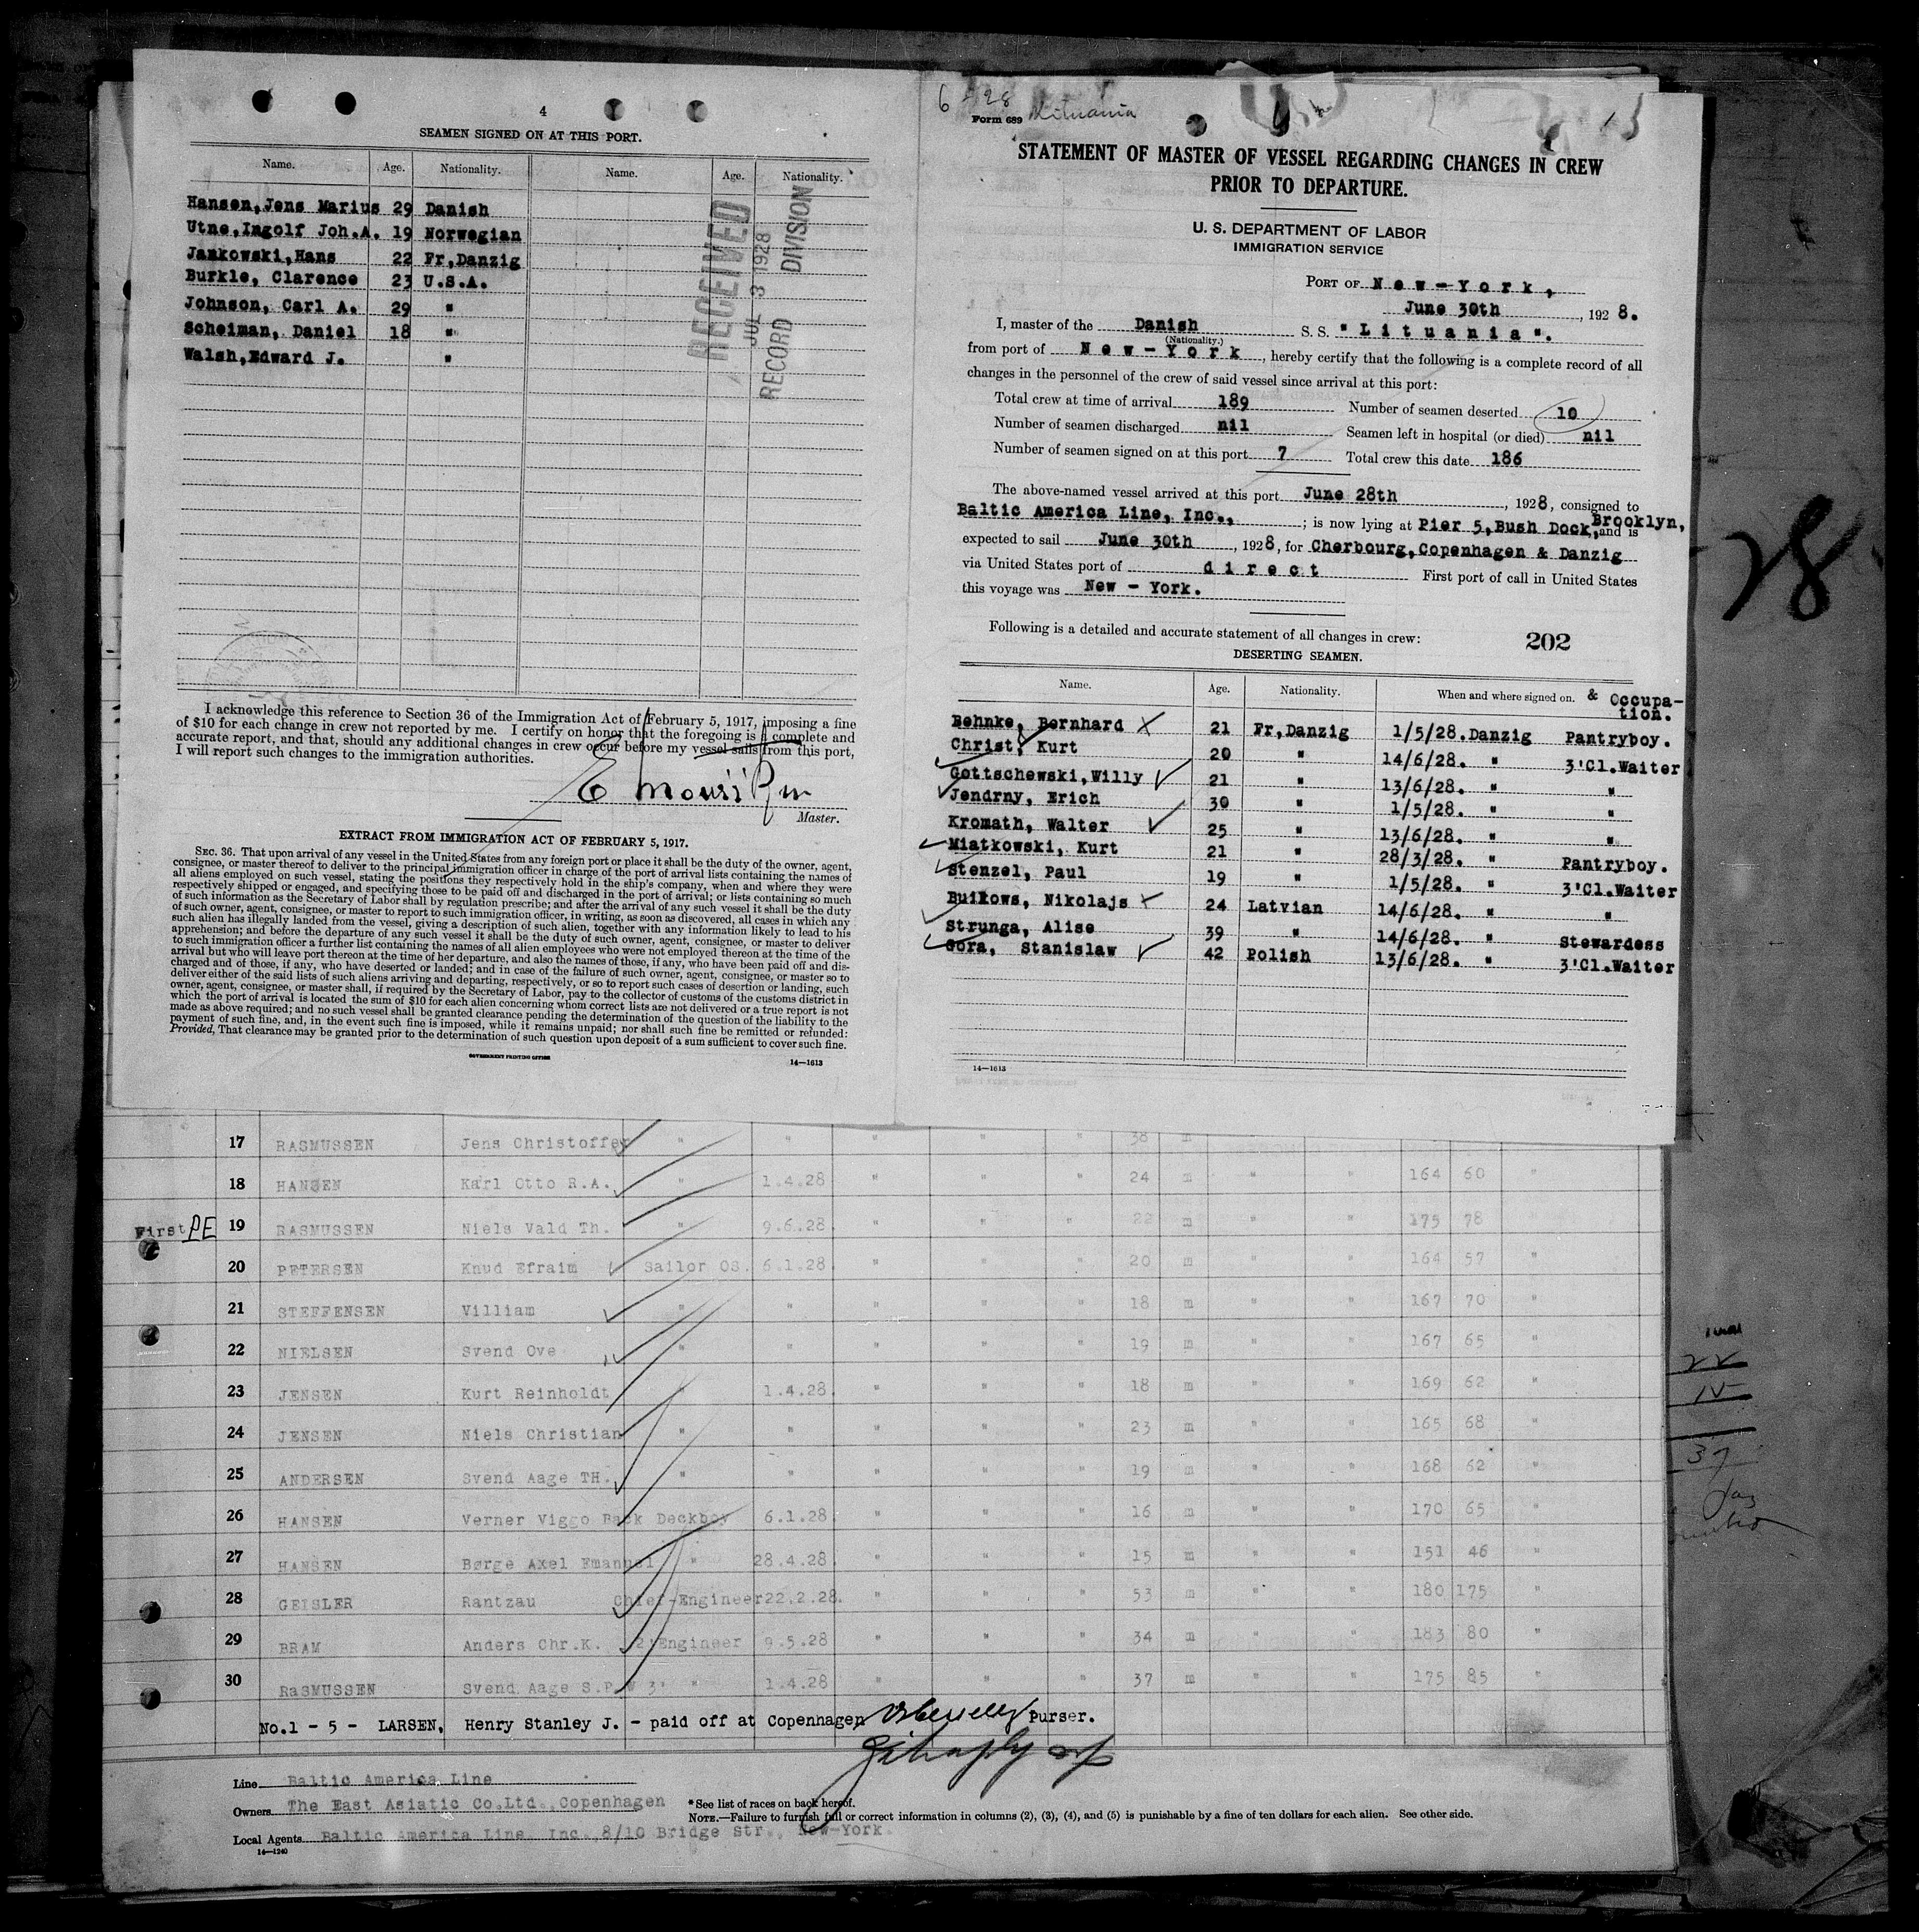 4
SEAMEN SIGNED ON AT THIS PORT.
Name. Age. Nationality. Name. Age. Nationality.
Hansen,Jens Marius 29 Danish
Utne,Ingolf Joh.A. 19 Norwegian
Jankowski,Hans 22 Fr,Danzig
Burkle, Clarence 23 U.S.A.
Johnson, Carl A. 29 "
Scheiman, Daniel 18 "
Walsh,Edward J. "
RECEIVED
JUL 3 1928
RECORD DIVISION
I acknowledge this reference to Section 36 of the Immigration Act of February 5, 1917, imposing a fine
of $10 for each change in crew not reported by me. I certify on honor that the foregoing is a complete and
accurate report, and that, should any additional changes in crew occur before my vessel sails from this port,
I will report such changes to the immigration authorities.
Master.
EXTRACT FROM IMMIGRATION ACT OF FEBRUARY 5, 1917.
SEC. 36. That upon arrival of any vessel in the United States from any foreign port or place it shall be the duty of the owner, agent,
consignee, or master thereof to deliver to the principal immigration officer in charge of the port of arrival lists containing the names of
all aliens employed on such vessel, stating the positions they respectively hold in the ship's company, when and where they were
respectively shipped or engaged, and specifying those to be paid off and discharged in the port of arrival; or lists containing so much
of such information as the Secretary of Labor shall by regulation prescribe; and after the arrival of any such vessel it shall be the duty
of such owner, agent, consignee, or master to report to such immigration officer, in writing, as soon as discovered, all cases in which any
such alien has illegally landed from the vessel, giving a description of such alien, together with any information likely to lead to his
apprehension; and before the departure of any such vessel it shall be the duty of such owner, agent, consignee, or master to deliver
to such immigration officer a further list containing the names of all alien employees who were not employed thereon at the time of the
arrival but who will leave port thereon at the time of her departure, and also the names of those, if any, who have been paid off and dis-
charged and of those, if any, who have deserted or landed; and in case of the failure of such owner, agent, consignee, or master so to
deliver either of the said lists of such aliens arriving and departing, respectively, or so to report such cases of desertion or landing, such
owner, agent, consignee, or master shall, if required by the Secretary of Labor, pay to the collector of customs of the customs district in
which the port of arrival is located the sum of $10 for each alien concerning whom correct lists are not delivered or a true report is not
made as above required; and no such vessel shall be granted clearance pending the determination of the question of the liability to the
payment of such fine, and, in the event such fine is imposed, while it remains unpaid; nor shall such fine be remitted or refunded:
Provided, That clearance may be granted prior to the determination of such question upon deposit of a sum sufficient to cover such fine.
GOVERNMENT PRINTING OFFICE
14—1613
Form 689 Lituania
STATEMENT OF MASTER OF VESSEL REGARDING CHANGES IN CREW
PRIOR TO DEPARTURE.
U. S. DEPARTMENT OF LABOR
IMMIGRATION SERVICE
PORT OF New-York,
June 30th, 1928.
I, master of the Danish S. S. "Lituania".
(Nationality.)
from port of New-York, hereby certify that the following is a complete record of all
changes in the personnel of the crew of said vessel since arrival at this port:
Total crew at time of arrival 189 Number of seamen deserted 10
Number of seamen discharged nil Seamen left in hospital (or died) nil
Number of seamen signed on at this port 7 Total crew this date 186
The above-named vessel arrived at this port June 28th, 1928, consigned to
Baltic America Line, Inc., ; is now lying at Pier 5,Bush Dock, Brooklyn, and is
expected to sail June 30th, 1928, for Cherbourg,Copenhagen & Danzig
via United States port of direct First port of call in United States
this voyage was New - York.
Following is a detailed and accurate statement of all changes in crew: 202
DESERTING SEAMEN.
Name. Age. Nationality. When and where signed on. & Occupa-
tion.
Behnke, Bernhard 21 Fr,Danzig 1/5/28.Danzig Pantryboy.
Christ, Kurt 20 " 14/6/28. " 3'Cl.Waiter
Gottschewski,Willy 21 " 13/6/28. " "
Jendrny, Erich 30 " 1/5/28. " "
Kromath, Walter 25 " 13/6/28. " "
Miatkowski, Kurt 21 " 28/3/28. " Pantryboy.
Stenzel, Paul 19 " 1/5/28. " 3'Cl.Waiter
Buikows, Nikolajs 24 Latvian 14/6/28. " "
Strunga, Alise 39 " 14/6/28. " Stewardess
Gora, Stanislaw 42 Polish 13/6/28. " 3'Cl.Waiter
14—1613
28
17 RASMUSSEN Jens Christoffer " " " " " 38 m
18 HANSEN Karl Otto R.A. " 1.4.28 " " " 24 m " " 164 60 "
First PE 19 RASMUSSEN Niels Vald Th. " 9.6.28. " " " 22 m " " 175 78 "
20 PETERSEN Knud Efraim Sailor OS. 6.1.28. " " " 20 m " " 164 57 "
21 STEFFENSEN Villiam " " " " " 18 m " " 167 70 "
22 NIELSEN Svend Ove " " " " " 19 m " " 167 65 "
23 JENSEN Kurt Reinholdt " 1.4.28. " " " 18 m " " 169 62 "
24 JENSEN Niels Christian " " " " " 23 m " " 165 68 "
25 ANDERSEN Svend Aage TH. " " " " " 19 m " " 168 62 "
26 HANSEN Verner Viggo Back Deckboy 6.1.28. " " " 16 m " " 170 65 "
27 HANSEN Børge Axel Emanuel " 28.4.28. " " " 15 m " " 151 46 "
28 GEISLER Rantzau Chief-Engineer 22.2.28. " " " 53 m " " 180 175 "
29 BRAM Anders Chr.K. 2'Engineer 9.5.28 " " " 34 m " " 183 80 "
30 RaSMUSSEN Svend Aage S.P.W 3' " 1.4.28 " " " 37 m " " 175 85 "
No.1 - 5 - LARSEN, Henry Stanley J. - paid off at Copenhagen Purser.
Line Baltic America Line
Owners The East Asiatic Co.Ltd. Copenhagen
*See list of races on back hereof.
NOTE.—Failure to furnish full or correct information in columns (2), (3), (4), and (5) is punishable by a fine of ten dollars for each alien. See other side.
Local Agents Baltic America Line, Inc.,8/10 Bridge Str., New-York.
14—1240